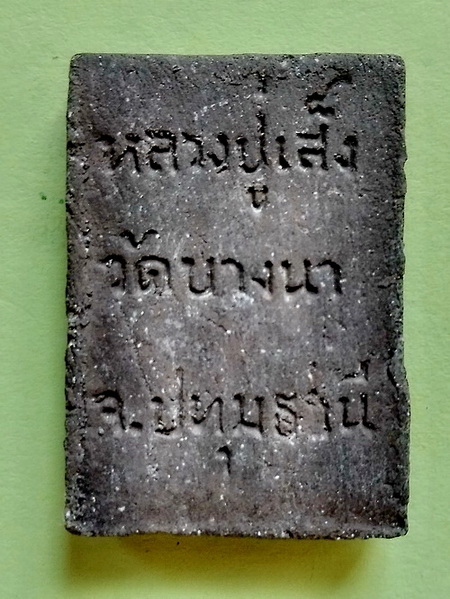 หลวงปู่เส็ง
วัดบางนา
จ.ปทุมธานี